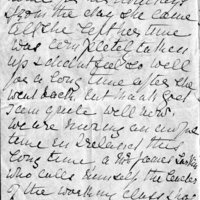 from the day she came
till she left her time
was completely taken
up & I did not feel so well
for a long time after she
went back. But thank God
I am quite well now
we are having an unjust
time in Ireland this
long time a Mr James Larkin
who calls himself the leader
of the working class has